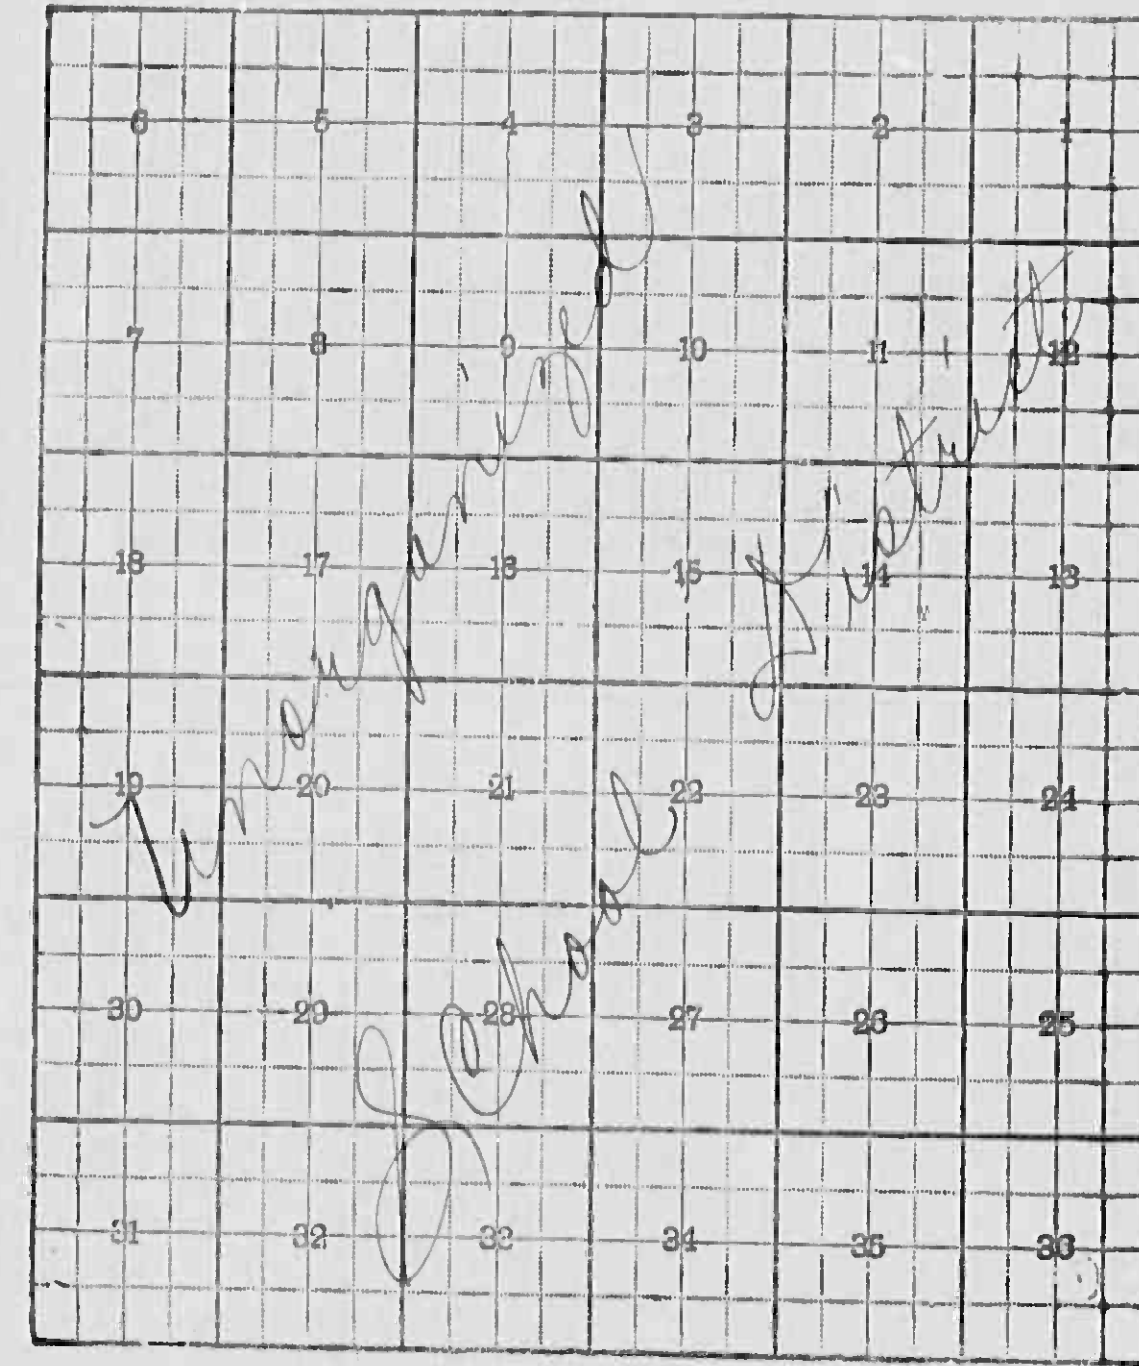 6 5 4 3 2 1
7 8 9 10 11 12
18 17 16 15 14 13
19 20 21 22 23 24
30 29 28 27 26 25
31 32 33 34 35 36
Unorganized
School District